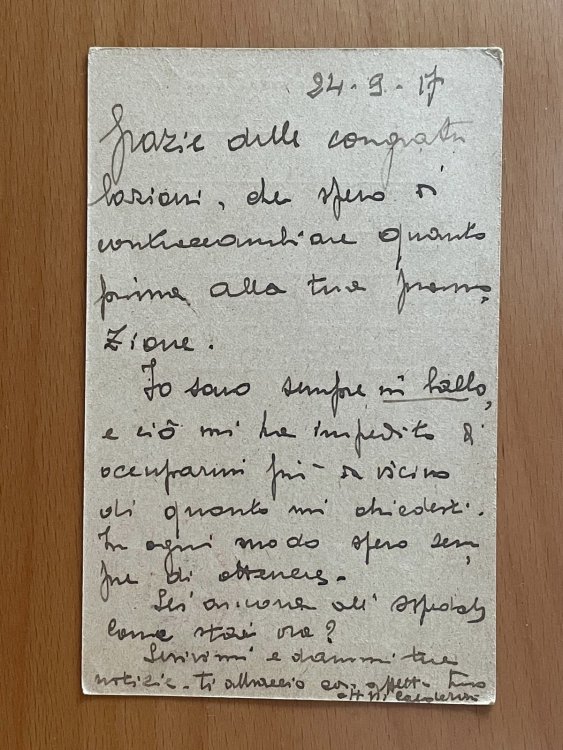 24-9-17
Grazie delle congratu
lazioni, che spero di
contraccambiare quanto
prima alla tua promo,
zione.
Io sono sempre in ballo,
e ciò mi ha impedito di
occuparmi più da vicino
di quanto mi chiedesti.
In ogni modo spero sem,
pre di ottenere.
Sei ancora all'ospedale
Come stai ora?
Scrivimi e dammi tue
notizie. Ti abbraccio con affetto tuo